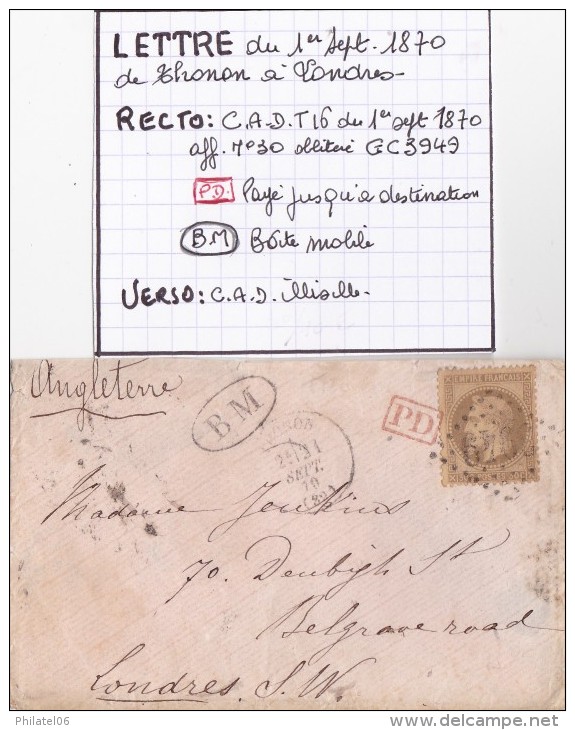 LETTRE du 1er Sept. 1870
de Thonon à Londres-
RECTO: C.A-D.T16 du 1er sept 1870
aff. n°30 obliteré GC3949
P.D. Payé jusqu'a destination
BM Boîte mobile
VERSO: C.A.D. illisible-
Angleterre
BM
SEPT.
70
PD
EMPIRE FRANCAIS
Madame Jenkins
70. Denbigh St
Belgrave road
Londres. S.W.
Philatel06
www.delcampe.net